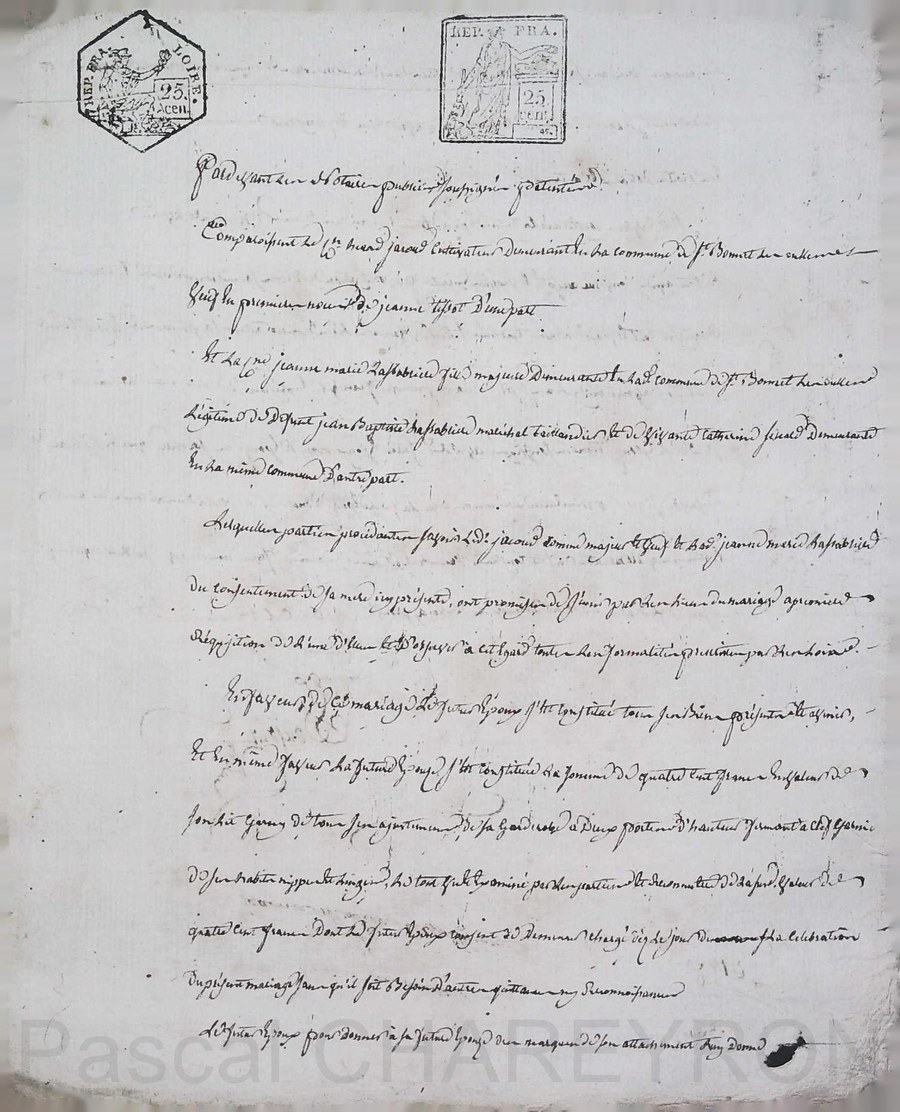 REP. FRA. LOIRE.
25. cen.
REP. FRA.
25 cen.
Pardevant les Notaires publics soussignés
Comparoissent le Cen jacoud Cultivateur Demeurant En la commune de St Bonnet les oulles
Veuf En premieres noces de jeanne tissot D'une part
Et la Cne jeanne marie Lassabliere fille majeure Demeurante En lad. commune de St Bonnet les oulles
Légitime de Defunt jean Baptiste Lassabliere maréchal taillandier Et de Vivante Catherine Demeurante
En la même commune D'autre part.
Lesquelles parties procedantes savoir led. jacoud comme majeur Et Veuf Et lad. jeanne marie Lassabliere
du consentement de sa mere icy présente, ont promis de S'unir par les Liens du mariage a premiere
Réquisition de L'une D'elles Et D'observer a cet Egard toutes les formalités prescrites par les Loix.
En faveur de Ce mariage Le futur Epoux S'est Constitué tous ses Biens présents Et avenir,
Et En même faveur La future Epouse S'est Constituée La somme de quatre cent francs En valeur de
son Lit Garny de tous ses ajustements, de sa Garderobe a Deux portes fermant a clef Garnie
de ses habits nippes Et Linges, Le tout Vu Et Examiné par les parties Et Reconnu Etre de la juste Valeur de
quatre Cent francs Dont Le futur Epoux consent de Demeurer chargé dès Le jour de La Celebration
Du présent mariage sans qu'il soit Besoin D'autres quittances ny Reconnoissances
Le futur Epoux pour donner a sa future Epouse des marques de son attachement Luy Donne
Pascal CHAREYRON